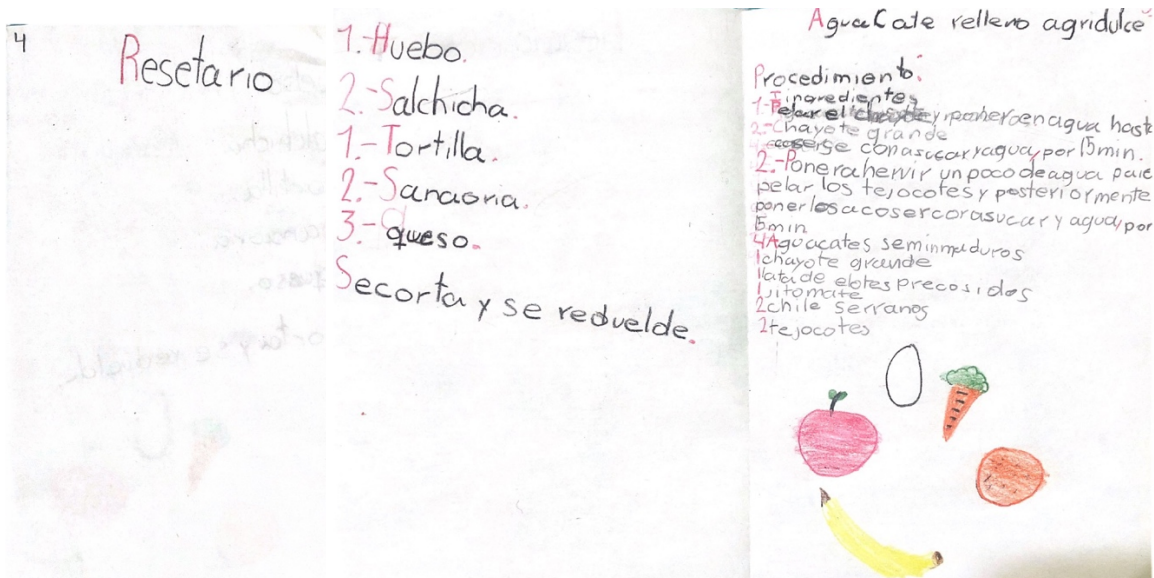 4
Resetario
1.-Huebo.
2-Salchicha.
1.-Tortilla.
2.-Sanaoria.
3.-queso.
Secorta y se reduelde.
AguaCate relleno agridulce
Procedimiento:
ingredientes
1-Pelar el y poneroenagua hasta
2-Chayote grande
coserse conasucaryagua, por 15min.
2.-Ponerahervir unpocodeagua para
pelar los tejocotes y posteriormente
ponerlosacosercorasucar y agua, por
15min
4Aguacates seminmaduros
1chayote grande
1latade elotes precosidos
1jitomate
2chile serranos
2tejocotes